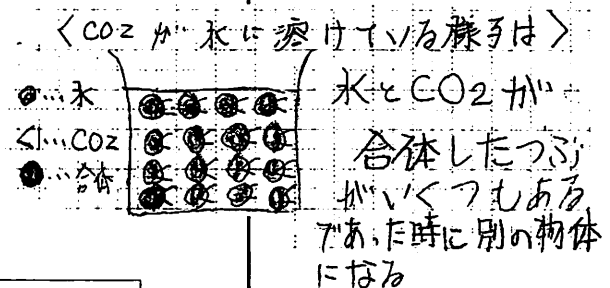 〈CO2が水に溶けている様子は〉
…水
…CO2
…合体
水とCO2が
合体したつぶ
がいくつもある
であった時に別の物体
になる